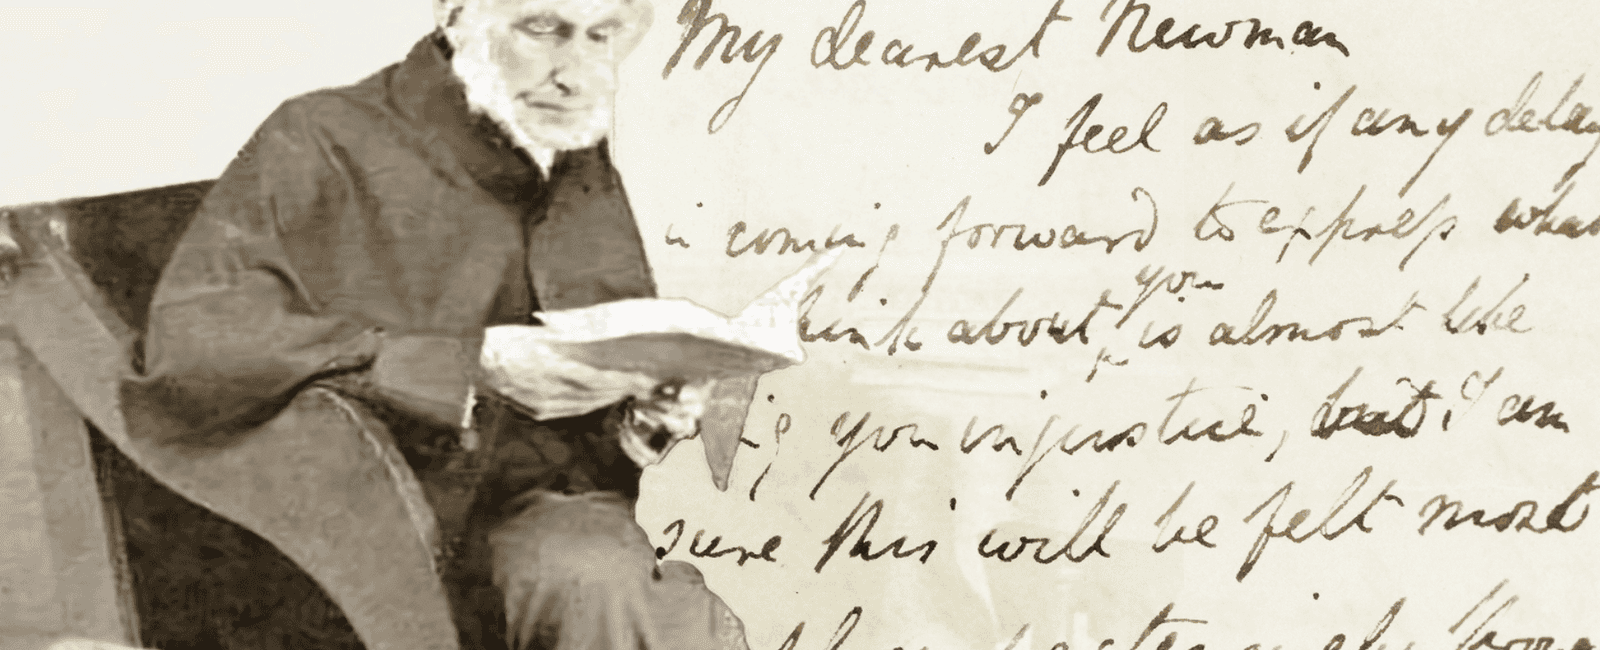 My dearest Newman
I feel as if any delay
in coming forward to express what
think about you is almost like
you injustice, but I am
sure this will be felt most